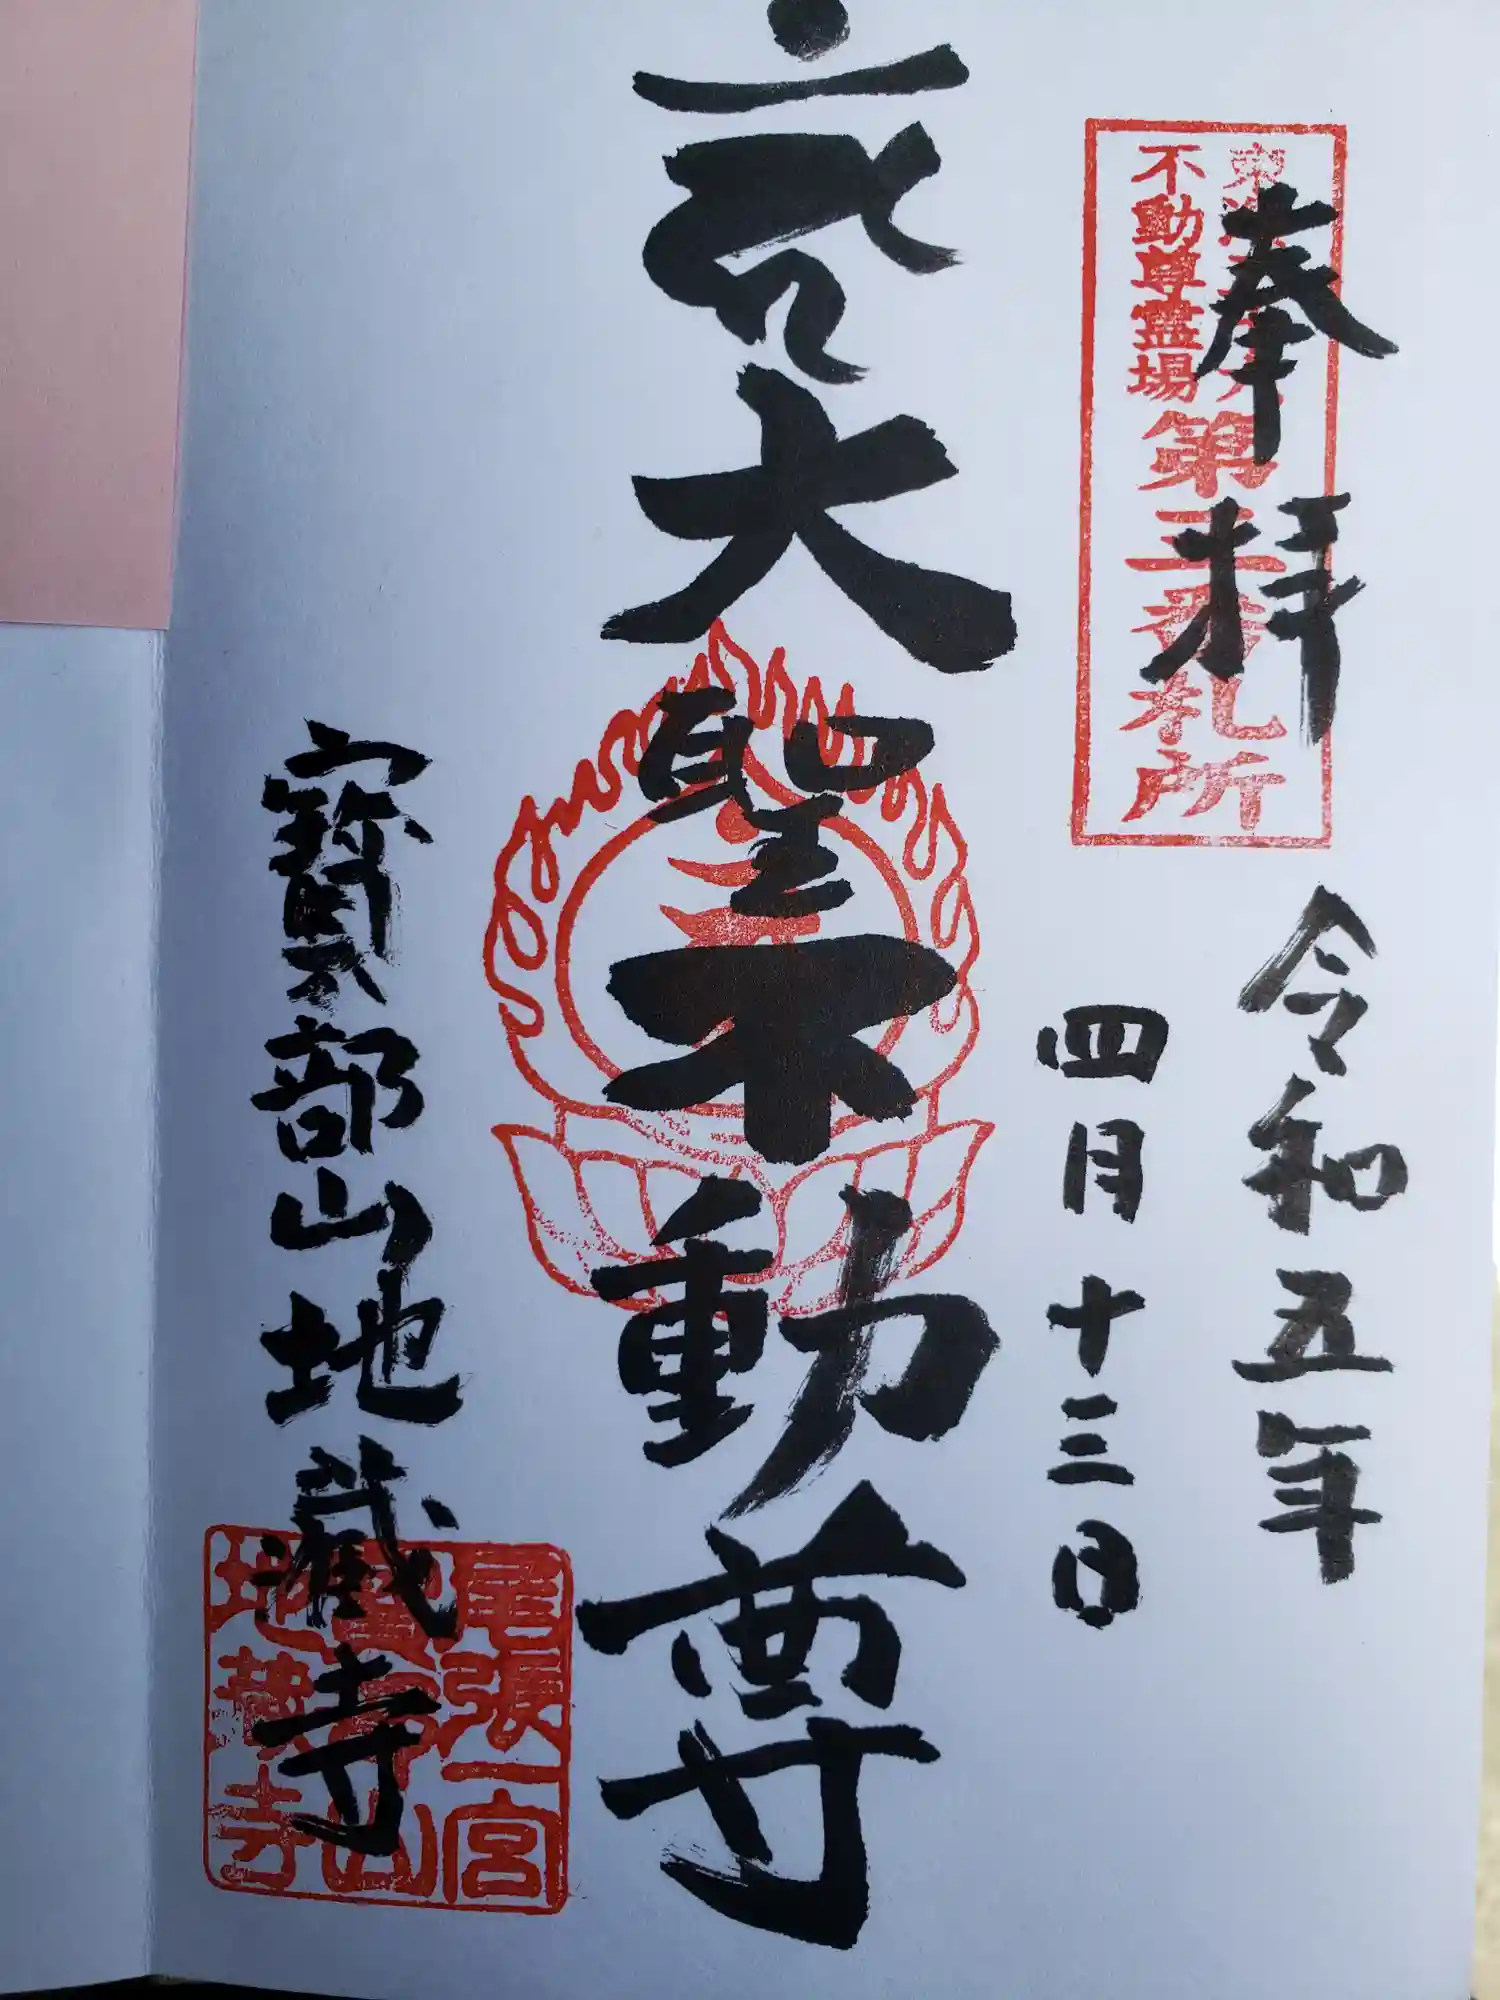 奉拝
不動尊霊場
番札所
令和五年
四月十三日
大聖不動尊
寳部山地蔵寺
尾張一宮
寳部山
地蔵寺